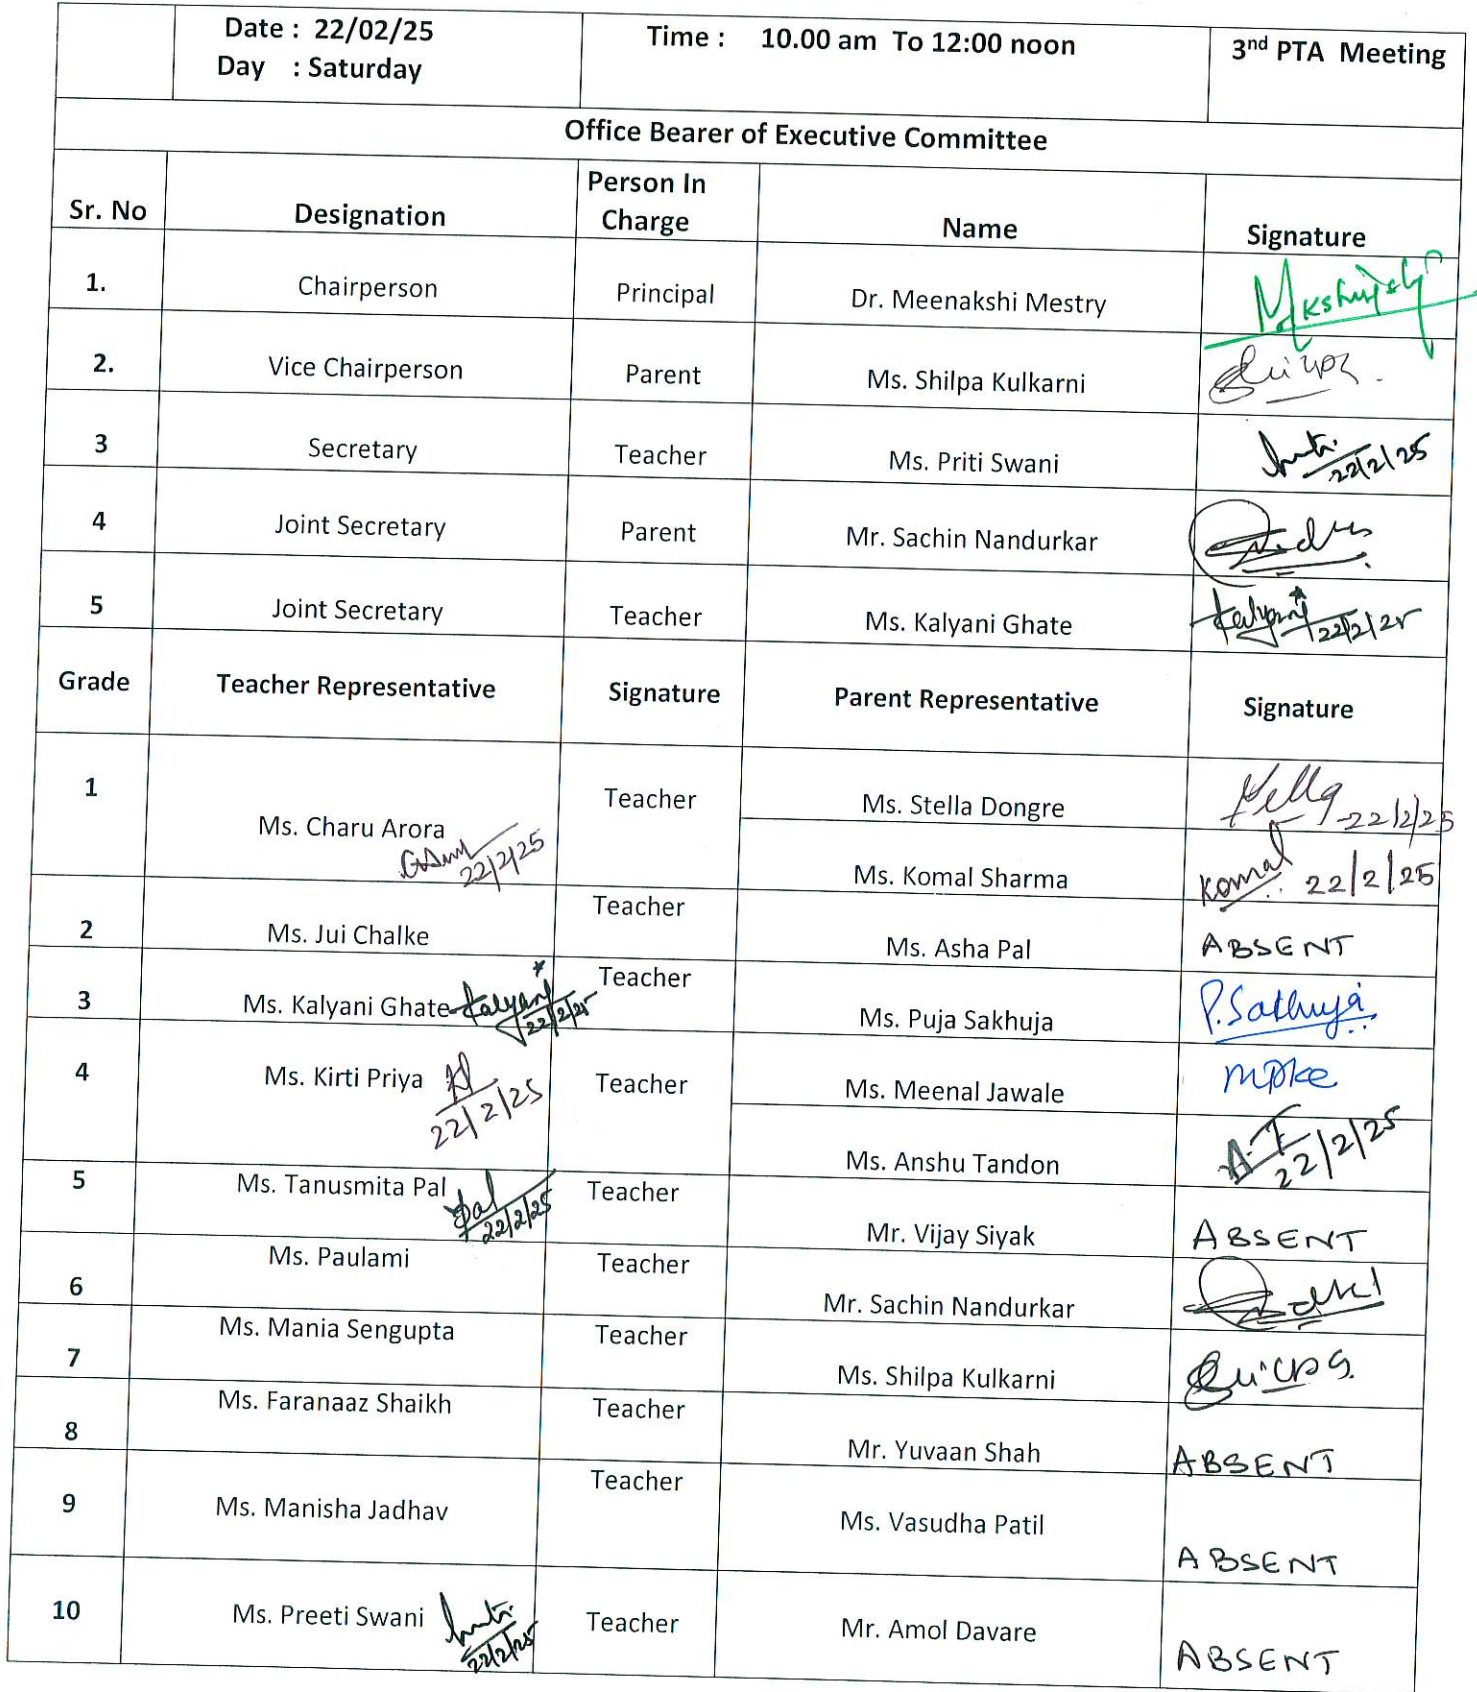 Date : 22/02/25
Day : Saturday
Time : 10.00 am To 12:00 noon
3nd PTA Meeting
Office Bearer of Executive Committee
Sr. No Designation Person In Charge Name Signature
1. Chairperson Principal Dr. Meenakshi Mestry
2. Vice Chairperson Parent Ms. Shilpa Kulkarni
3 Secretary Teacher Ms. Priti Swani 22/2/25
4 Joint Secretary Parent Mr. Sachin Nandurkar
5 Joint Secretary Teacher Ms. Kalyani Ghate Kalyani 22/2/25
Grade Teacher Representative Signature Parent Representative Signature
1 Ms. Charu Arora 22/2/25 Teacher Ms. Stella Dongre Stella 22/2/25
Ms. Komal Sharma Komal 22/2/25
2 Ms. Jui Chalke Teacher Ms. Asha Pal ABSENT
3 Ms. Kalyani Ghate Kalyani 22/2/25 Teacher Ms. Puja Sakhuja P.Sakhuja
4 Ms. Kirti Priya 22/2/25 Teacher Ms. Meenal Jawale
Ms. Anshu Tandon A.T 22/2/25
5 Ms. Tanusmita Pal Pal 22/2/25 Teacher Mr. Vijay Siyak ABSENT
6 Ms. Paulami Teacher Mr. Sachin Nandurkar
7 Ms. Mania Sengupta Teacher Ms. Shilpa Kulkarni
8 Ms. Faranaaz Shaikh Teacher Mr. Yuvaan Shah ABSENT
9 Ms. Manisha Jadhav Teacher Ms. Vasudha Patil ABSENT
10 Ms. Preeti Swani 22/2/25 Teacher Mr. Amol Davare ABSENT